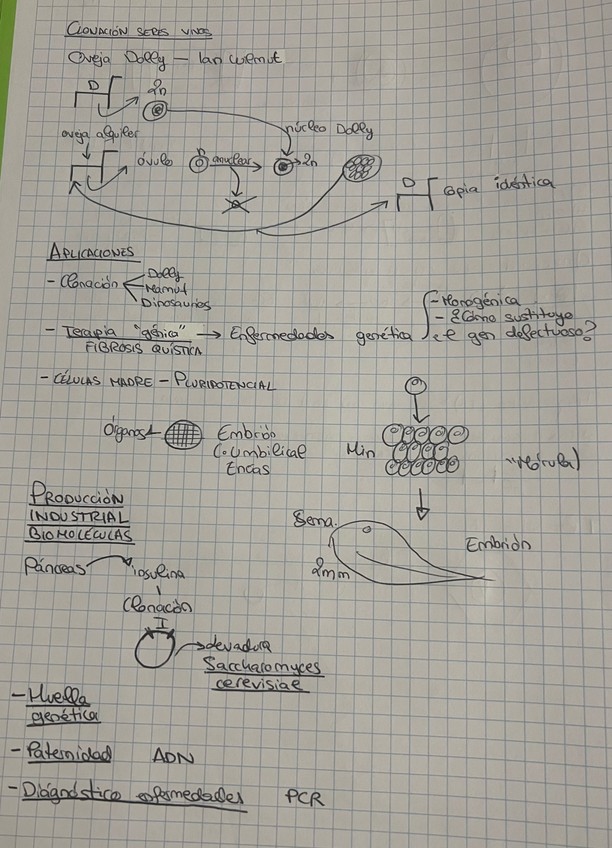 CLONACIÓN SERES VIVOS
Oveja Dolly — Ian Wilmut
D 2n
núcleo Dolly
oveja alquiler
óvulo n anuclear → 2n
D Copia idéntica
APLICACIONES
- Clonación
Dolly
Mamut
Dinosaurios
- Terapia "génica" → Enfermedades genética
FIBROSIS QUÍSTICA
- Monogénica
- ¿Cómo sustituyo
el gen defectuoso?
- CÉLULAS MADRE - PLURIPOTENCIAL
Órganos
Embrión
C. Umbilical
Encías
Min
(Mórula)
Sema.
2mm
Embrión
PRODUCCIÓN
INDUSTRIAL
BIOMOLÉCULAS
Páncreas → insulina
Clonación
I
→ levadura
Saccharomyces
cerevisiae
- Huella
genética
- Paternidad ADN
- Diágnóstico enfermedades PCR